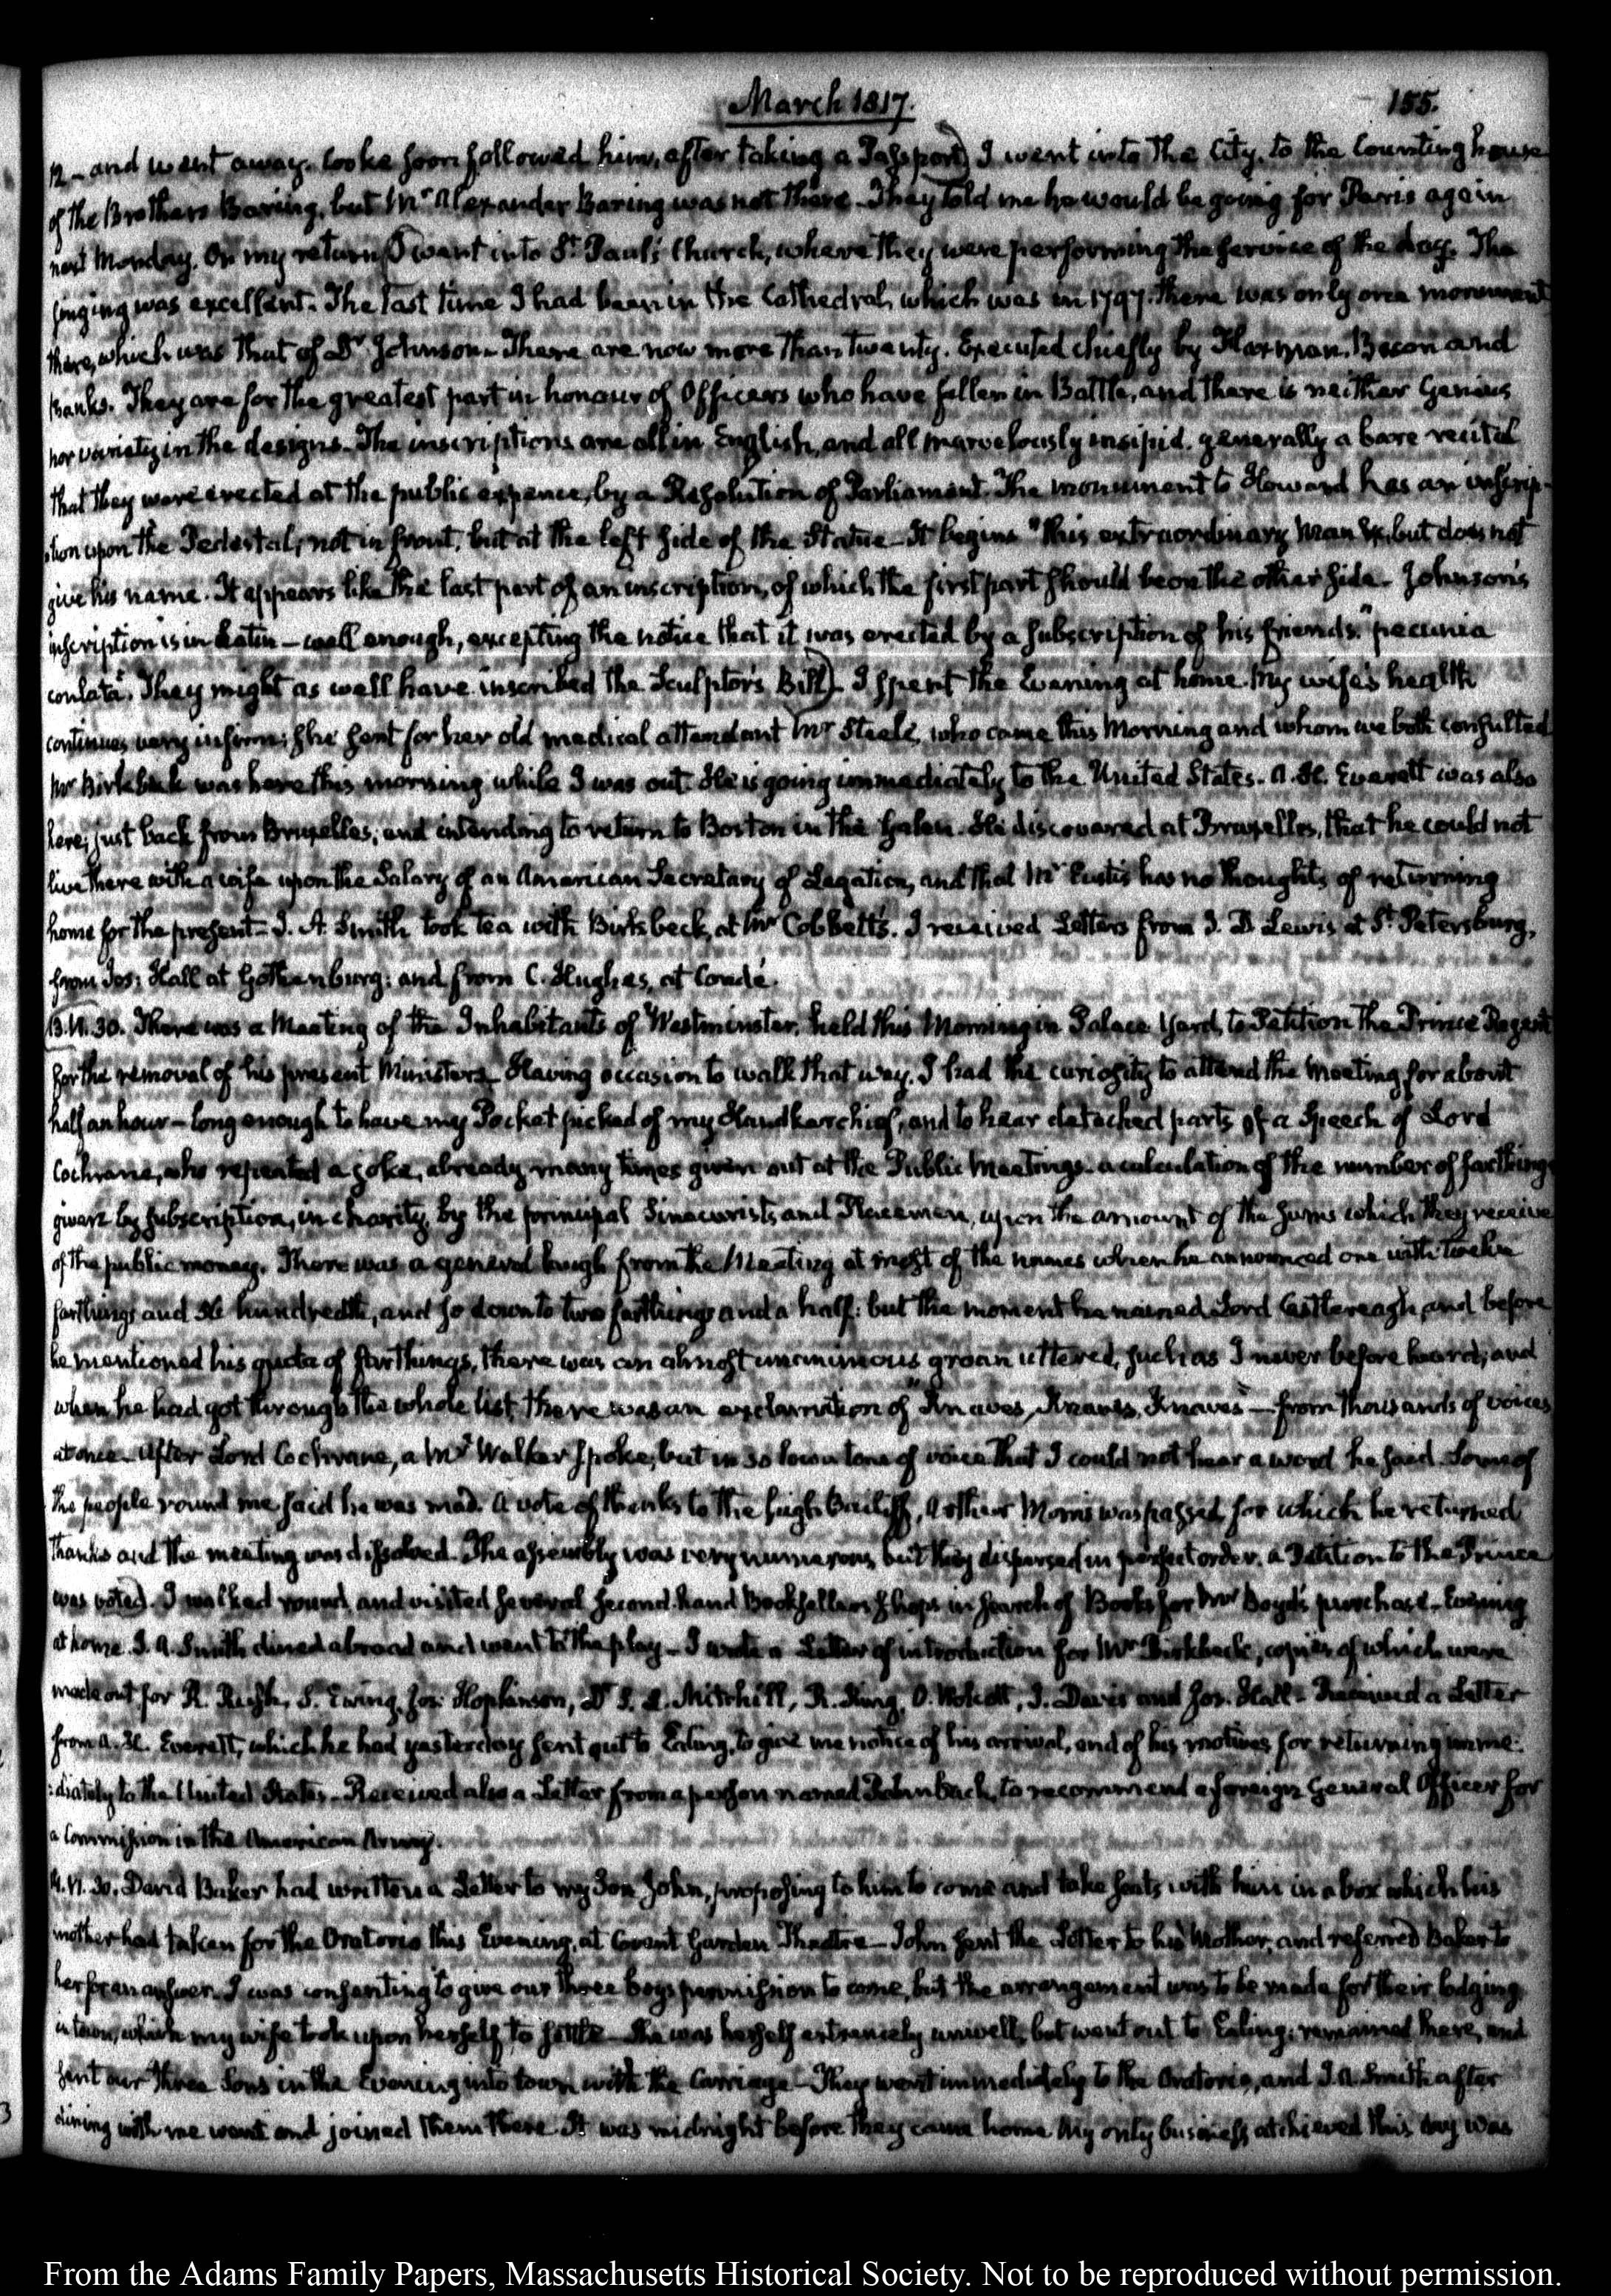 March 1817.
155.
12 – and went away. Cooke soon followed him, after taking a Passport) I went into the City, to the Counting house
of the Brothers Baring, but Mr. Alexander Baring was not there – They told me he would be going for Paris again
next Monday. On my return (I went into St. Paul's Church, where they were performing the service of the day. The
singing was excellent. The last time I had been in the Cathedral, which was in 1797. there was only one monument
there, which was that of Dr. Johnson – There are now more than twenty. Executed chiefly by Flaxman, Bacon and
Banks. They are for the greatest part in honour of Officers who have fallen in Battle, and there is neither Genius
nor variety in the designs – The inscriptions are all in English, and all marvelously insipid. generally a bare recital
that they were erected at the public expence, by a Resolution of Parliament. The monument to Howard has an inscrip-
tion upon the Pedestal; not in front, but at the left side of the Statue – It begins "this extraordinary man &c, but does not
give his name. It appears like the last part of an inscription, of which the first part should be on the other side – Johnson's
inscription is in Latin – well enough, excepting the notice that it was erected by a subscription of his friends. "pecunia
conlata". They might as well have inscribed the Sculptor's Bill) – I spent the Evening at home. My wife's health
continues very infirm; she sent for her old medical attendant Mr. Steele, who came this Morning and whom we both consulted
Mr. Birkbeck was here this morning while I was out. He is going immediately to the United States. A. H. Everett was also
here; just back from Bruxelles; and intending to return to Boston in the Galen. He discovered at Bruxelles, that he could not
live there with a wife upon the Salary of an American Secretary of Legation, and that Mr. Eustis has no thoughts of returning
home for the present – J. A. Smith took tea with Birkbeck, at Mr. Cobbett's. I received Letters from J. D. Lewis at St. Petersburg,
from Jos: Hall at Gothenburg: and from C. Hughes, at Condé.
13. VI. 30. There was a Meeting of the Inhabitants of Westminster, held this Morning in Palace Yard, to Petition the Prince Regent
for the removal of his present Ministers – Having occasion to walk that way, I had the curiosity to attend the Meeting for about
half an hour – long enough to have my Pocket picked of my Handkerchief, and to hear detached parts of a Speech of Lord
Cochrane, who repeated a joke, already many times given out at the Public Meetings – a calculation of the number of farthings
given by subscription, in charity, by the principal Sinecurists and Placemen, upon the amount of the sums which they receive
of the public money. There was a general laugh from the Meeting at most of the names when he announced one with twelve
farthings and hundredth, and so down to two farthings and a half: but the moment he named Lord Castlereagh, and before
he mentioned his quota of farthings, there was an almost unanimous groan uttered, such as I never before heard; and
when he had got through the whole list, there was an exclamation of "Knaves, Knaves, Knaves" – from thousands of voices
at once – After Lord Cochrane, a Mr. Walker spoke, but in so low a tone of voice that I could not hear a word he said. Some of
the people round me said he was mad. A vote of thanks to the high Bailiff, Arthur Morris was passed, for which he returned
thanks and the meeting was dissolved. The assembly was very numerous, but they dispersed in perfect order. a Petition to the Prince
was voted). I walked round and visited several second-hand Booksellers shops in search of Books for Mr. Boyd's purchase – Evening
at home. J. A. Smith dined abroad and went to the play – I wrote a Letter of introduction for Mr. Birkbeck, copies of which were
made out for R. Rush, S. Ewing, Jos: Hopkinson, Dr. S. L. Mitchill, R. King, O. Wolcott, J. Davis and Jos. Hall – Received a Letter
from A. H. Everett, which he had yesterday sent out to Ealing, to give me notice of his arrival, and of his motives for returning imme:
:diately to the United States – Received also a Letter from a person named to recommend a foreign General Officer for
a Commission in the American Army.
14. VI. 30. David Baker had written a Letter to my Son John, proposing to him to come and take seats with him in a box which his
mother had taken for the Oratorio this Evening, at Covent Garden Theatre – John sent the Letter to his Mother, and referred Baker to
her for an answer. I was consenting to give our three boys permission to come, but the arrangement was to be made for their lodging
in town, which my wife took upon herself to settle – She was herself extremely unwell, but went out to Ealing; remained there, and
sent our three Sons in the Evening into town with the Carriage – They went immediately to the Oratorio, and J. A. Smith after
dining with me went and joined them there. It was midnight before they came home. My only business atchieved this day was
From the Adams Family Papers, Massachusetts Historical Society. Not to be reproduced without permission.